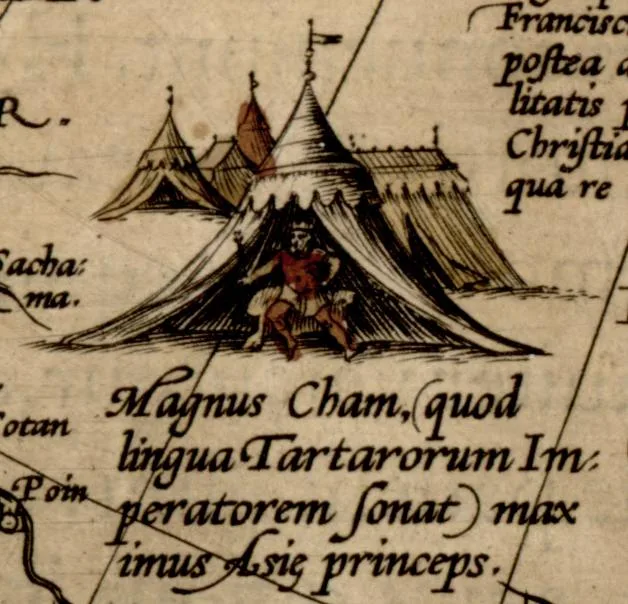 Francisc
postea
litatis
Christia
qua re
R.
Sacha:
ma.
Magnus Cham, (quod
lingua Tartarorum Im:
peratorem sonat) max
imus Asię princeps.
otan
Poin